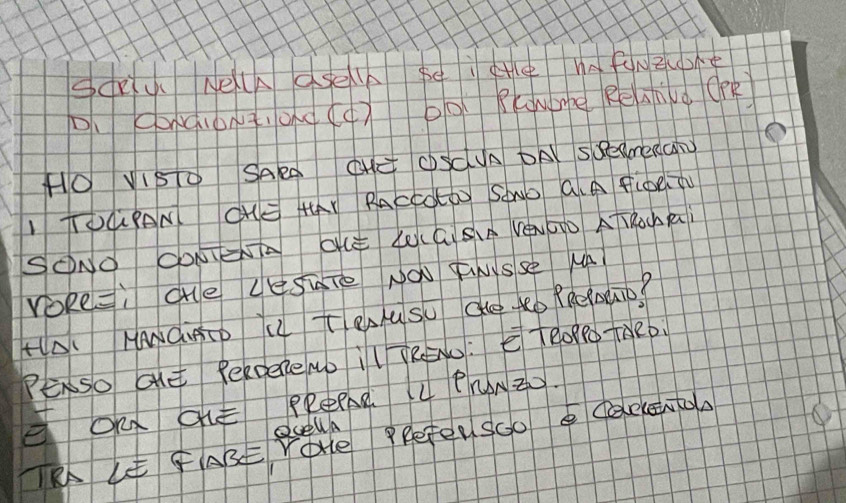 Scrivi Nella casella se il che ha funzione
Di CONGIONZIONE (C) O DI PRONOME Relativo (PR)
HO VISTO SARA CHE USCIVA DAL SUPERMERCATO
I TULIPANI CHE HAI RACCOLTO SONO GIÀ FIORITI
SONO CONTENTA CHE LUCA SIA VENUTO A TROVARCI
VORREI CHE L'ESTATE NON FINISSE MAI
HAI MANGIATO IL TIRAMISU CHE HO PREPARATO?
PENSO CHE PERDEREMO il TRENO: È TROPPO TARDI
È ORA CHE PREPARI IL PRANZO.
TRA LE FIABE, quella CHE PREFERISCO è CENERENTOLA